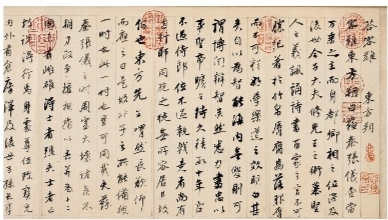 答客難 東方朔
客難東方朔曰蘇秦張儀壹當
萬乘之主而身都卿相之位澤及
後世今子大夫修先王之術慕聖
人之義諷誦詩書百家之言不可
勝記著於竹帛唇腐齒落服膺
而不可釋好學樂道之效明白甚
矣自以為智能海內無雙則可
謂博聞辯智矣然悉力盡忠以
事聖帝曠日持久積數十年官
不過侍郎位不過執戟意者尚有
遺行邪同胞之徒無所容居其何
故也東方先生喟然長歎仰
而應之曰是故非子之所能備彼
一時也此一時也豈可同哉夫蘇
秦張儀之時周室大壞諸侯不
朝力政爭權相擒以兵并為十二
國未有雌雄得士者強失士者亡故
說得行焉身處尊位珍寶充
內外有倉廩澤及後世子孫長享